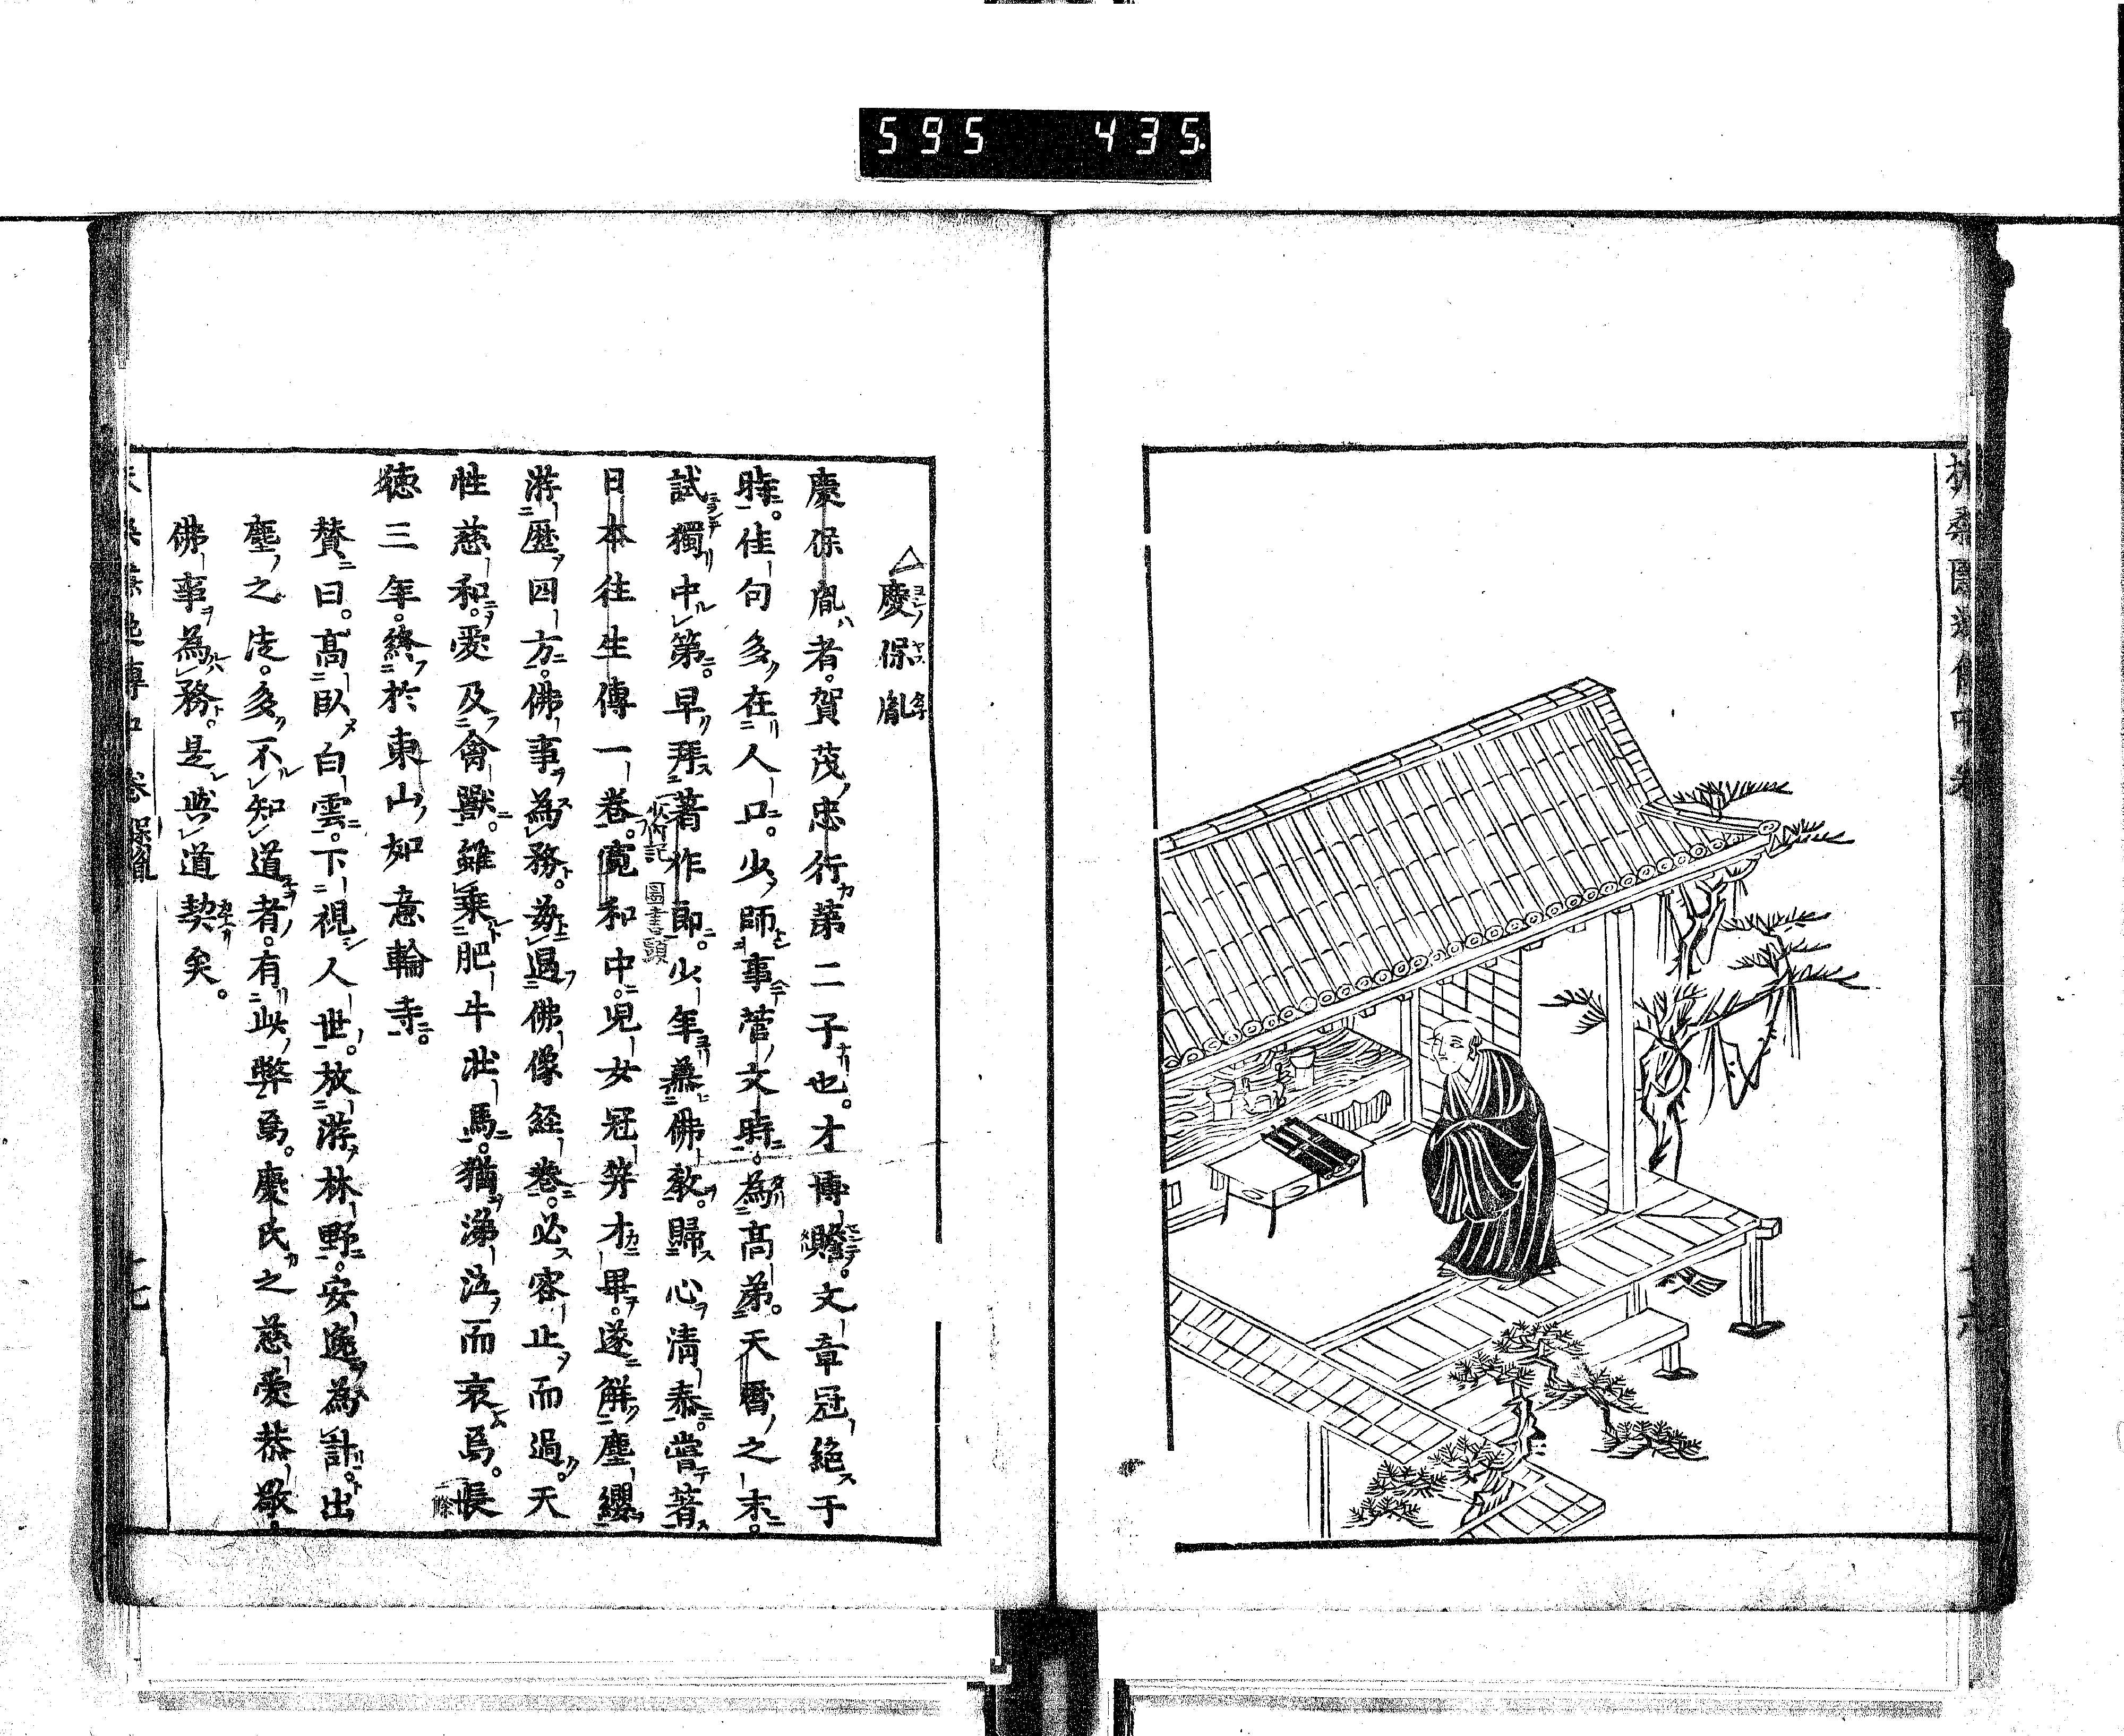 595 435
慶保胤
慶保胤者。賀茂忠行第二子也。才博贍。文章冠絕于
時。佳句多在人口。少師事菅文時。為高弟。天曆之末。
試獨中第。早拜著作郎。少年慕佛教。歸心清泰。嘗著
日本往生傳一卷。寬和中。兒女冠笄才畢。遂解塵纓
游歷四方。佛事為務。苟過佛像經卷。必容止而過。天
性慈和。愛及禽獸。雖乘肥牛壯馬。猶涕泣而哀焉。長
德三年。終於東山如意輪寺。
贊曰。高臥白雲。下視人世。放游林野。安逸為計。出
塵之法。多不知道者。有此弊焉。慶民之慈愛恭敬。
佛事為務。是與道契矣。
卷 保胤
十七